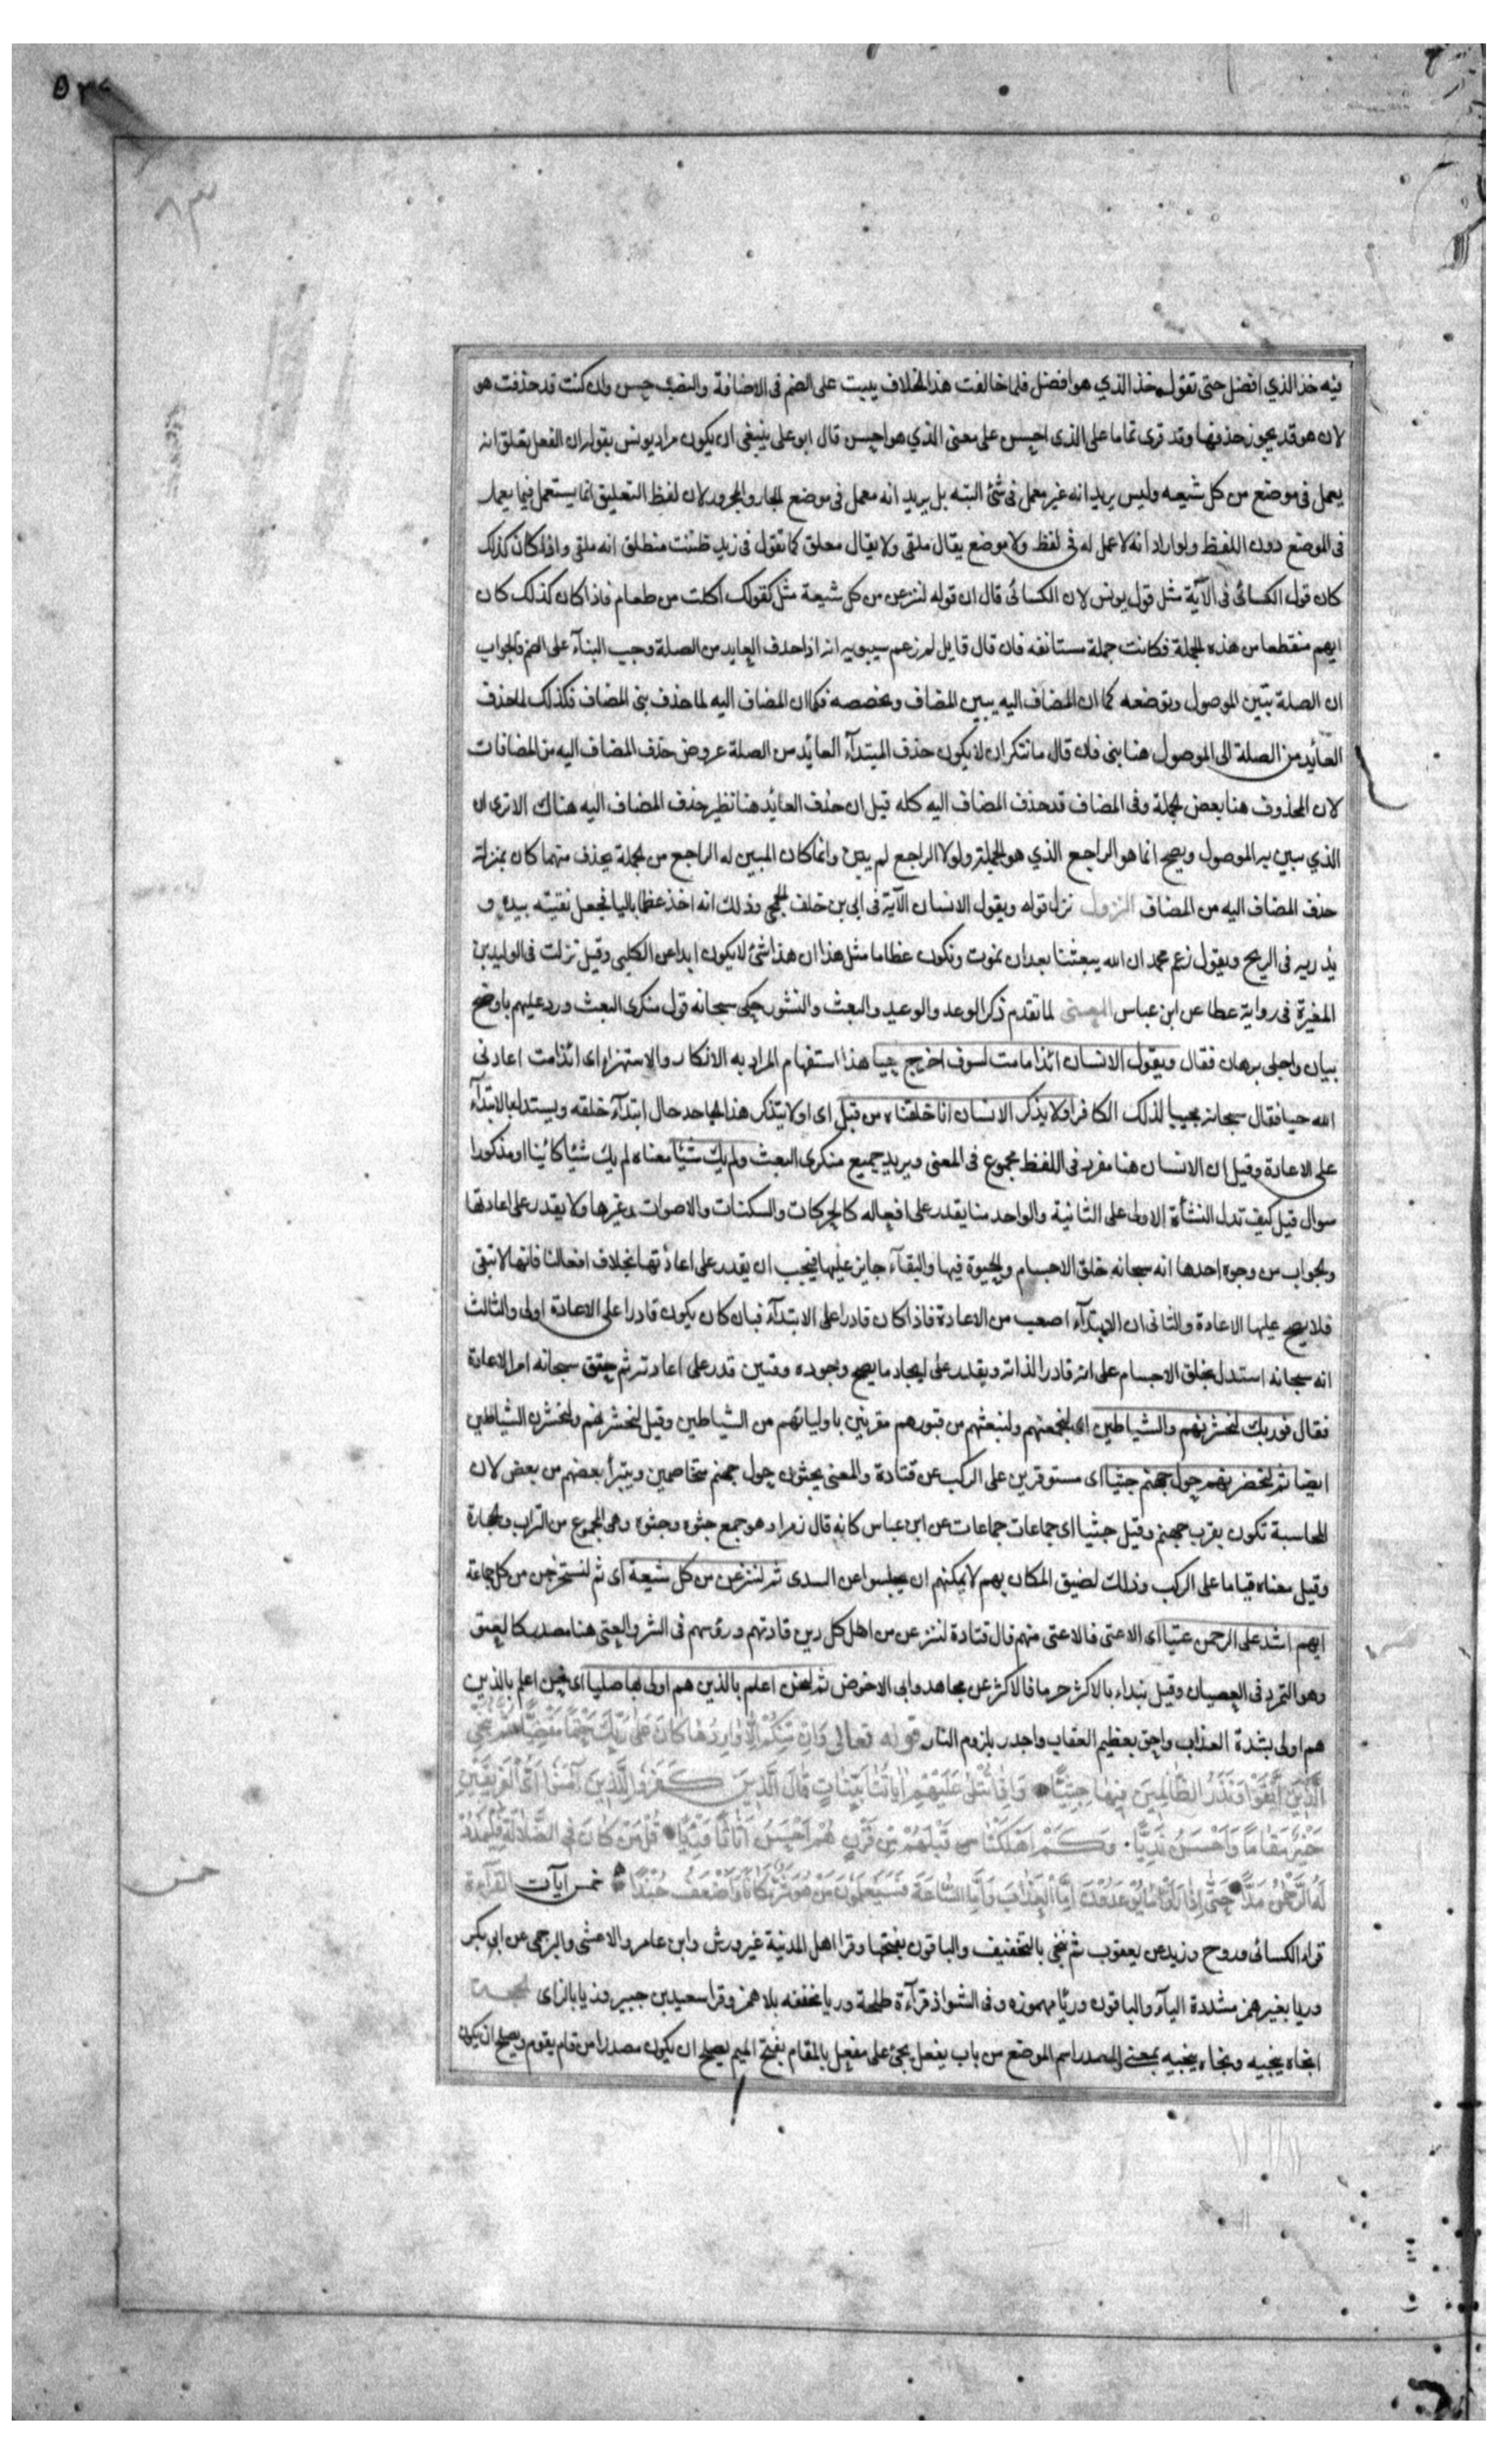 فيه خذ الذي افضل حتى تقول خذ الذي هو افضل فلما خالفت هذا الخلاف بنيت على الضم في الاضافة والنصب حسن وان كنت قد حذفت هو
لان هو قد يجوز حذفها وقد قرى تماما على الذى احسن على معنى الذي هو احسن قال ابو على ينبغى ان يكون مراد يونس بقوله ان الفعل يتعلق انه
يعمل في موضع من كل شيعه وليس يريد انه غير معمل في شئ البته بل يريد انه معمل في موضع الجار والمجرور لان لفظ التعليق انما يستعمل فيما يعمل
في الموضع دون اللفظ ولو اراد انه لا عمل له في لفظ ولا موضع يقال ملقى ولا يقال معلق كما تقول في زيد ظننت منطلق انه ملقى واذا كان كذلك
كان قول الكسائى فى الآية مثل قول يونس لان الكسائى قال ان قوله لننزعن من كل شيعة مثل كقولك اكلت من طعام فاذا كان كذلك كان
ايهم منقطعا من هذه الجملة فكانت جملة مستانفه فان قال قايل لم زعم سيبويه انه اذا حذف العايد من الصلة وجب البنآء على الضم فالجواب
ان الصلة تبين الموصول وتوضحه كما ان المضاف اليه يبين المضاف ويخصصه فكما ان المضاف اليه لما حذف بنى المضاف فكذلك لما حذف
العائد من الصلة الى الموصول هنا بنى فان قال ما تنكر ان لا يكون حذف المبتدآء العائد من الصلة عروض حذف المضاف اليه من المضافات
لان المحذوف هنا بعض الجملة وفى المضاف قد حذف المضاف اليه كله قيل ان حذف العائد هنا نظير حذف المضاف اليه هناك الا ترى ان
الذي يبين به الموصول ويصح انما هو الراجع الذي هو الجملة ولولا الراجع لم يبين وانما كان المبين له الراجع من الجملة يحذف منهما كان بمنزلة
حذف المضاف اليه من المضاف النزول نزل قوله ويقول الانسان الآية فى ابى بن خلف الجمحى وذلك انه اخذ عظما باليا فجعل يفتته بيده و
يذريه فى الريح ويقول زعم محمد ان الله يبعثنا بعد ان نموت ونكون عظاما مثل هذا ان هذا شئ لا يكون ابدا عن الكلبى وقيل نزلت فى الوليد بن
المغيرة فى رواية عطا عن ابن عباس المعنى لما تقدم ذكر الوعد والوعيد والبعث والنشور حكى سبحانه قول منكرى البعث ورد عليهم باوضح
بيان واجلى برهان فقال ويقول الانسان ائذا ما مت لسوف اخرج حيا هذا استفهام المراد به الانكار والاستهزاء اى ائذا مت اعادنى
الله حيا فقال سبحانه مجيبا لذلك الكافر اولا يذكر الانسان انا خلقناه من قبل اى اولا يتذكر هذا الجاحد حال ابتدآء خلقه ويستدل بالابتدآء
على الاعادة وقيل ان الانسان هنا مفرد فى اللفظ مجموع فى المعنى ويريد جميع منكرى البعث ولم يك شيئا معناه لم يك شيئا كائنا او مذكورا
سوال قيل كيف تدل النشأة الاولى على الثانية والواحد منا يقدر على افعاله كالحركات والسكنات والاصوات وغيرها ولا يقدر على اعادتها
والجواب من وجوه احدها انه سبحانه خلق الاجسام والحيوة فيها والبقآء جايز عليها فيجب ان يقدر على اعادتها بخلاف افعالنا فانها لا تبقى
فلا يصح عليها الاعادة والثانى ان الابتدآء اصعب من الاعادة فاذا كان قادرا على الابتدآء فبان كان يكون قادرا على الاعادة اولى والثالث
انه سبحانه استدل بخلق الاجسام على انه قادر الذاته ويقدر على ايجاد ما يصح وجوده وقتين قدر على اعادته ثم حقق سبحانه امر الاعادة
فقال فوربك لنحشرنهم والشياطين اى لنجمعنهم ولنبعثهم من قبورهم مقرنين باوليائهم من الشياطين وقيل لنحشرنهم ولنحشرن الشياطين
ايضا ثم لنحضرنهم حول جهنم جثيا اى مستوفزين على الركب عن قتادة والمعنى يجثون حول جهنم متخاصمين ويتبرأ بعضهم من بعض لان
المحاسبة تكون بقرب جهنم وقيل جثيا اى جماعات جماعات عن ابن عباس كانه قال زمرا وهو جمع جثوه وجثوه وهى المجموع من التراب والحجارة
وقيل معناه قياما على الركب وذلك لضيق المكان بهم لا يمكنهم ان يجلسوا عن السدى ثم لننزعن من كل شيعة اى ثم لنستخرجن من كل جماعة
ايهم اشد على الرحمن عتيا اى الاعتى فالاعتى منهم قال قتادة لننزعن من اهل كل دين قادتهم ورؤسهم فى الشر والعتى هنا مصدر كالعتو
وهو التمرد فى العصيان وقيل نبداء بالاكثر جرما فالاكثر عن مجاهد وابى الاحوض ثم لنحن اعلم بالذين هم اولى بها صليا اى نحن اعلم بالذين
هم اولى بشدة العذاب واحق بعظيم العقاب واجدر بلزوم النار قوله تعالى وَاِنْ مِنْكُمْ اِلَّا وٰارِدُهٰا كٰانَ عَلىٰ رَبِّكَ حَتْمًا مَقْضِيًّا ثُمَّ نُنَجِّي
الَّذِيْنَ اتَّقَوْا وَنَذَرُ الظّٰالِمِيْنَ فِيْهٰا جِثِيًّا وَاِذٰا تُتْلىٰ عَلَيْهِمْ اٰيٰاتُنٰا بَيِّنٰاتٍ قٰالَ الَّذِيْنَ كَفَرُوا لِلَّذِيْنَ اٰمَنُوْا اَىُّ الْفَرِيْقَيْنِ
خَيْرٌ مَقٰامًا وَاَحْسَنُ نَدِيًّا وَكَمْ اَهْلَكْنٰا قَبْلَهُمْ مِنْ قَرْنٍ هُمْ اَحْسَنُ اَثٰاثًا وَرِئْيًا قُلْ مَنْ كٰانَ فِى الضَّلٰالَةِ فَلْيَمْدُدْ
لَهُ الرَّحْمٰنُ مَدًّا حَتّٰى اِذٰا رَاَوْا مٰا يُوْعَدُوْنَ اِمَّا الْعَذٰابَ وَاِمَّا السّٰاعَةَ فَسَيَعْلَمُوْنَ مَنْ هُوَ شَرٌّ مَكٰانًا وَاَضْعَفُ جُنْدًا خمس ايآت القرآءة
قراء الكسائى وروح وزيد عن يعقوب ثم ننجى بالتخفيف والباقون بفتحها وقرا اهل المدنية غير ورش وابن عامر والاعشى والبرجمى عن ابى بكر
وريا بغير همز مشددة اليآء والباقون ورئيا مهموزه وفى الشواذ قرآءة طلحة وريا مخففه بلا همز وقرا سعيد بن جبير وزيا بالزاى الحجة
انجاه ينجيه ونجاه ينجيه بمعنى المصدر اسم الموضع من باب يفعل يجئ على مفعل بالمقام بفتح الميم يصلح ان يكون مصدرا من قام يقوم ويصلح ان يكون
خمس